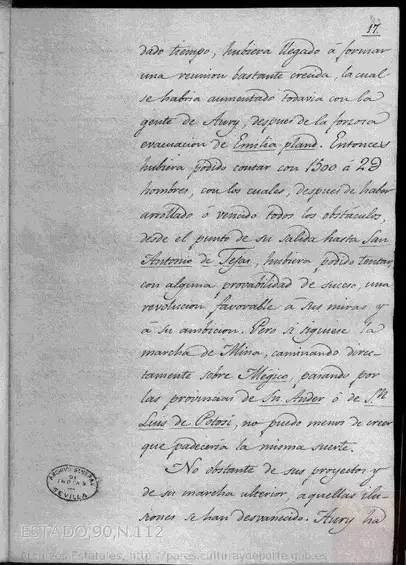 17.
dado tiempo, hubiera llegado á formar
una reunion bastante crecida, la cual
se habria aumentado todavia con la
gente de Aury, despues de la forzosa
evacuacion de Emilia-pland. Entonces
hubiera podido contar con 1500 á 2D
hombres, con los cuales, despues de haber
arrollado ó vencido todos los obstaculos,
desde el punto de su salida hasta San
Antonio de Tejas, hubiera podido tentar,
con alguna provabilidad de suceso, una
revolucion favorable á sus miras y
á su ambicion. Pero si siguiese la
marcha de Mina, caminando direc-
tamente sobre Megico, pasando por
las provincias de Sn. Ander ó de Sn.
Luis de Potosí, no puedo menos de creer
que padeceria la misma suerte.
No obstante de sus proyectos y
de su marcha ulterior, aquellas ilu-
siones se han desvanecido. Aury ha
ARCHIVO GENERAL
DE
INDIAS
SEVILLA
ESTADO,90,N.112
Archivos Estatales, http://pares.culturaydeporte.gob.es